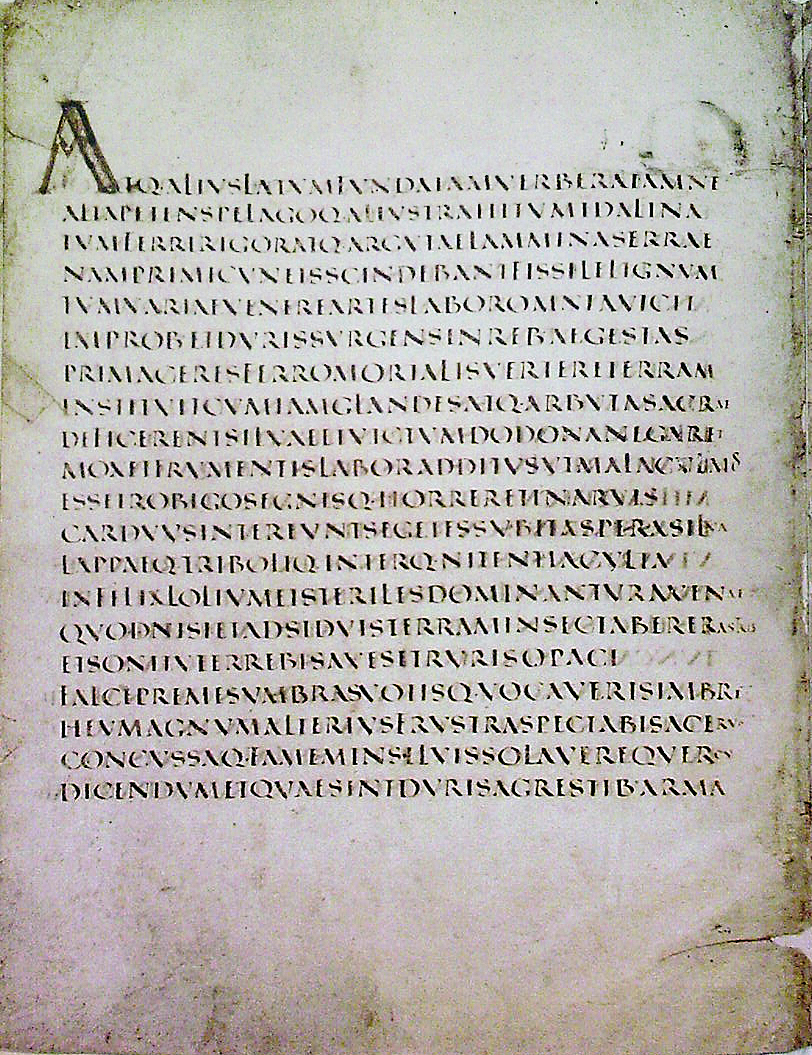 ATQALIVSLATVMFVNDAIAMVERBERATAMNE
ALTAPETENSPELAGOQALIVSTRAHITVMIDALINA
TVMFERRIRIGORATQARGVTAELAMMINASERRAE
NAMPRIMICVNEISSCINDEBANTFISSILELIGNVM
TVMVARIAEVENEREARTESLABOROMNIAVICIT
IMPROBETDVRISSVRGENSINREB·AEGESTAS
PRIMACERESFERROMORTALISVERTERETERRAM
INSTITVITCVMIAMGLANDESATQARBVTASACRAE
DEFICERENTSILVAEETVICTVMDODONANEGARET
MOXETFRVMENTISLABORADDITVSVTMALACVLMOS
ESSETROBIGOSEGNISQ·HORRERETINARVIS
CARDVVSINTEREVNTSEGETESSVBITASPERASILVA
LAPPAEQTRIBOLIQ·INTERQNITENTIACVLTA
INFELIXLOLIVMETSTERILESDOMINANTVRAVENAE
QVODNISIETADSIDVISTERRAMINSECTABERERASTRIS
ETSONITVTERREBISAVESETRVRISOPACI
FALCEPREMESVMBRASVOTISQ·VOCAVERISIMBRE
HEVMAGNVMALTERIVSFRVSTRASPECTABISACERVV
CONCVSSAQ·FAMEMINSILVISSOLAVEREQVERCV
DICENDVMETQVAESINTDVRISAGRESTIB·ARMA